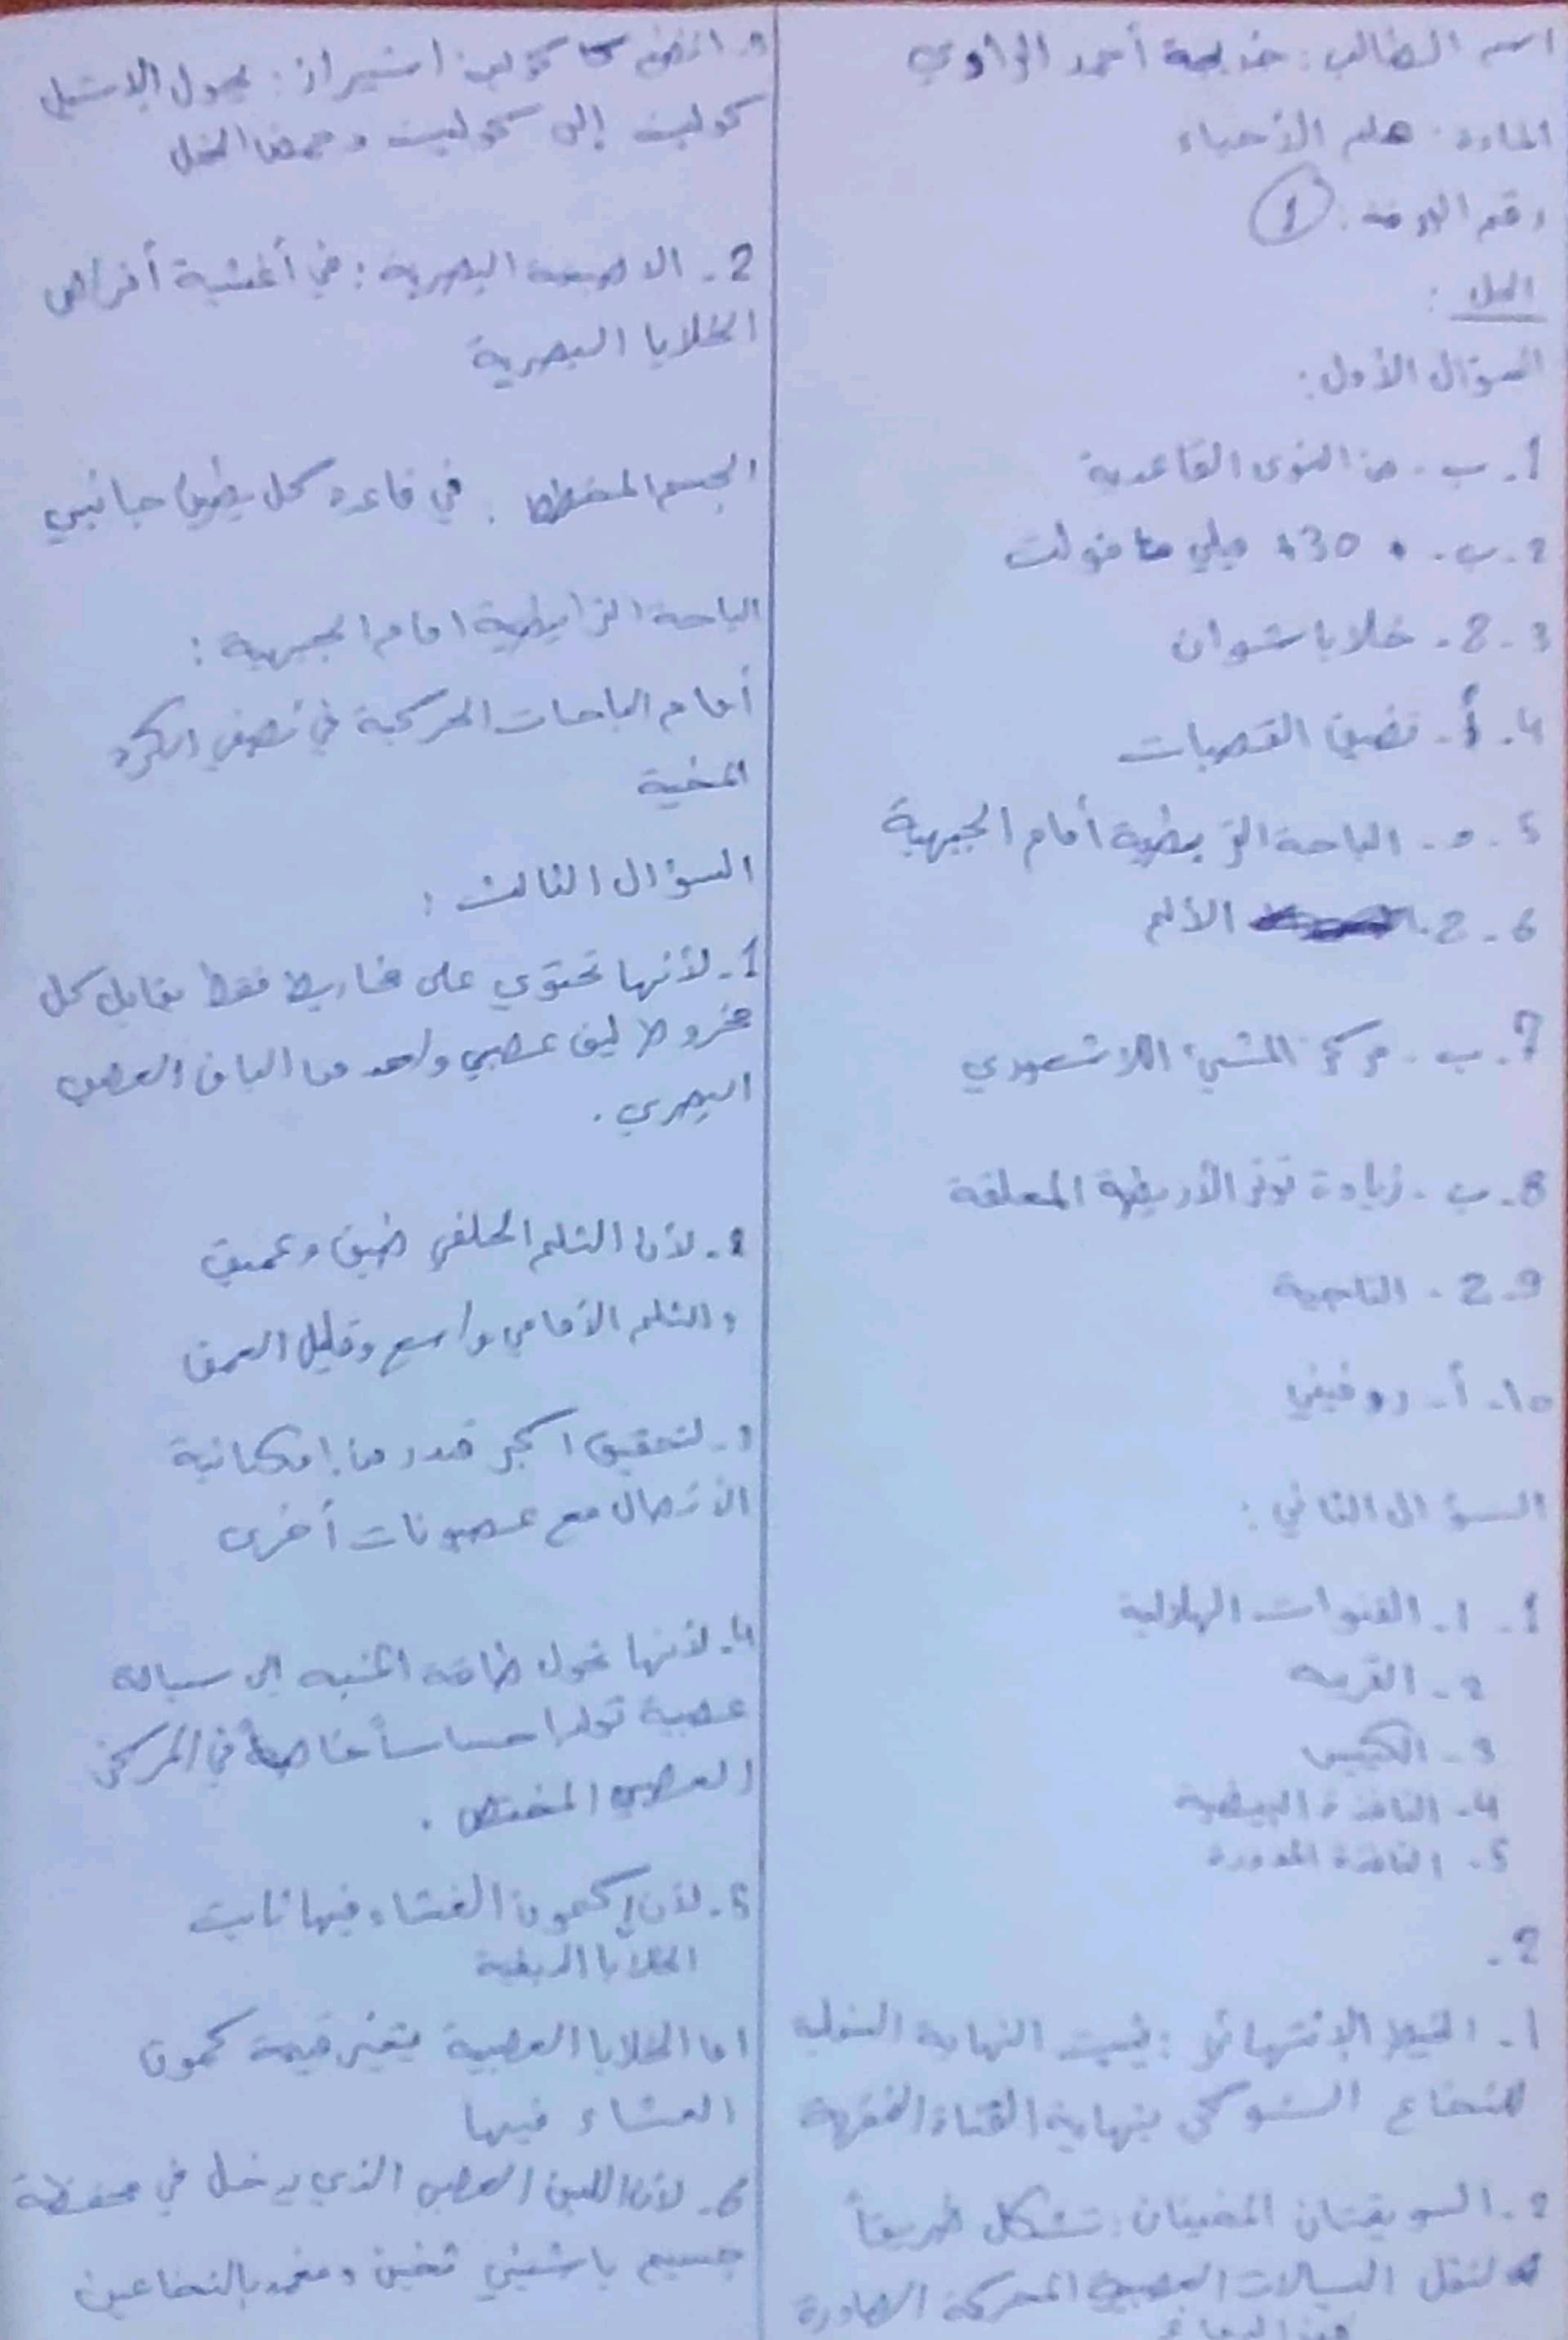 اسم الطالب: خديجة أحمد الراوي
المادة: علم الأحياء
رقم الورقة: 1
الحل:
السؤال الأول:
1- ب- من النوى القاعدية
2- ب- +30 ميلي فولت
3- 2- خلايا شوان
4- أ- تضيق القصبات
5- د- الباحة الترابطية أمام الجبهية
6- 2- الألم
7- ب- مركز المشي اللاشعوري
8- ب- زيادة توتر الأربطة المعلقة
9- 2- النامية
10- أ- روفيني
السؤال الثاني:
1- 1- القنوات الهلالية
2- القربة
3- الكييس
4- النافذة البيضية
5- النافذة المدورة
2-
1- الخيط الانتهائي: يثبت النهاية السفلية
للنخاع الشوكي بنهاية القناة الفقرية
2- السويقتان المخيتان: تشكل طريقاً
لنقل السيالات العصبية المحركة الصادرة
عن الدماغ
3- كولين استيراز: يحول الاستيل
كولين إلى كولين وحمض الخل
2- الاصبغة البصرية: في أغشية أقراص
الخلايا البصرية
الجسم المخطط: في قاعدة كل بطين جانبي
الباحة الترابطية امام الجبهية:
أمام الباحات الحركية في نصفي الكرة
المخية
السؤال الثالث:
1- لأنها تحتوي على مخاريط فقط يقابل كل
مخروط ليف عصبي واحد من ألياف العصب
البصري.
2- لأن الثلم الخلفي ضيق وعميق
والثلم الأمامي واسع وقليل العمق
3- لتحقيق اكبر قدر من إمكانية
الاتصال مع عصبونات أخرى
4- لأنها تحول طاقة المنبه إلى سيالة
عصبية تولد احساساً خاصاً في المركز
العصبي المختص.
5- لأن كمون الغشاء فيها ثابت
الخلايا الدبقية
اما الخلايا العصبية يتغير قيمة كمون
الغشاء فيها
6- لأن الليف العصبي الذي يدخل في محفظة
جسيم باشيني ثخين ومغمد بالنخاعين